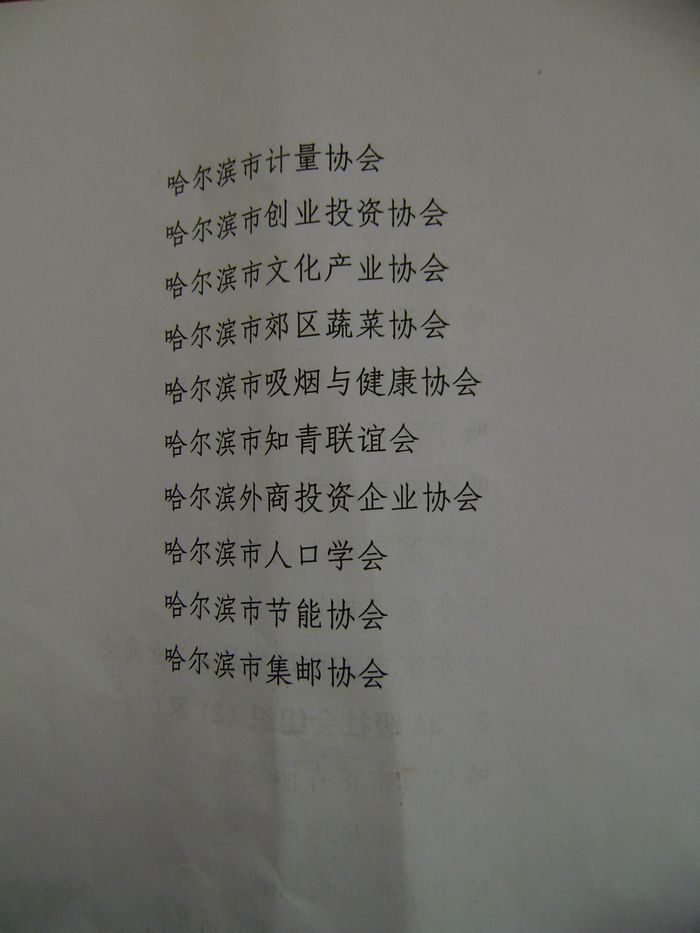 哈尔滨市计量协会
哈尔滨市创业投资协会
哈尔滨市文化产业协会
哈尔滨市郊区蔬菜协会
哈尔滨市吸烟与健康协会
哈尔滨市知青联谊会
哈尔滨外商投资企业协会
哈尔滨市人口学会
哈尔滨市节能协会
哈尔滨市集邮协会
3A级社会组织（21家）